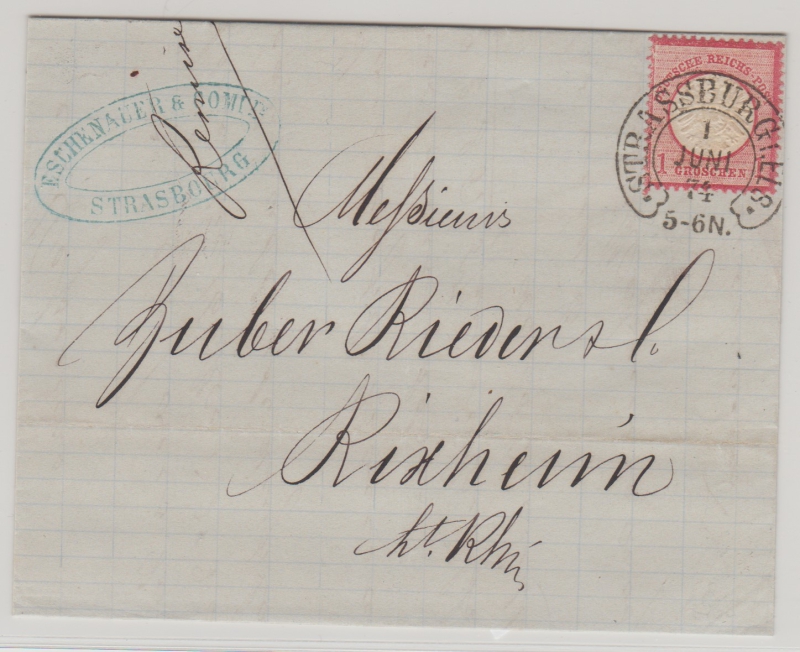 ESCHENAUER & COMP.
STRASBOURG
Remise
DEUTSCHE REICHS-POST
1 GROSCHEN
STRASSBURG I. ELS.
1
JUNI
74
5-6N.
Meßieurs
Zuber Rieder & C.
Rixheim
ht. Rhin